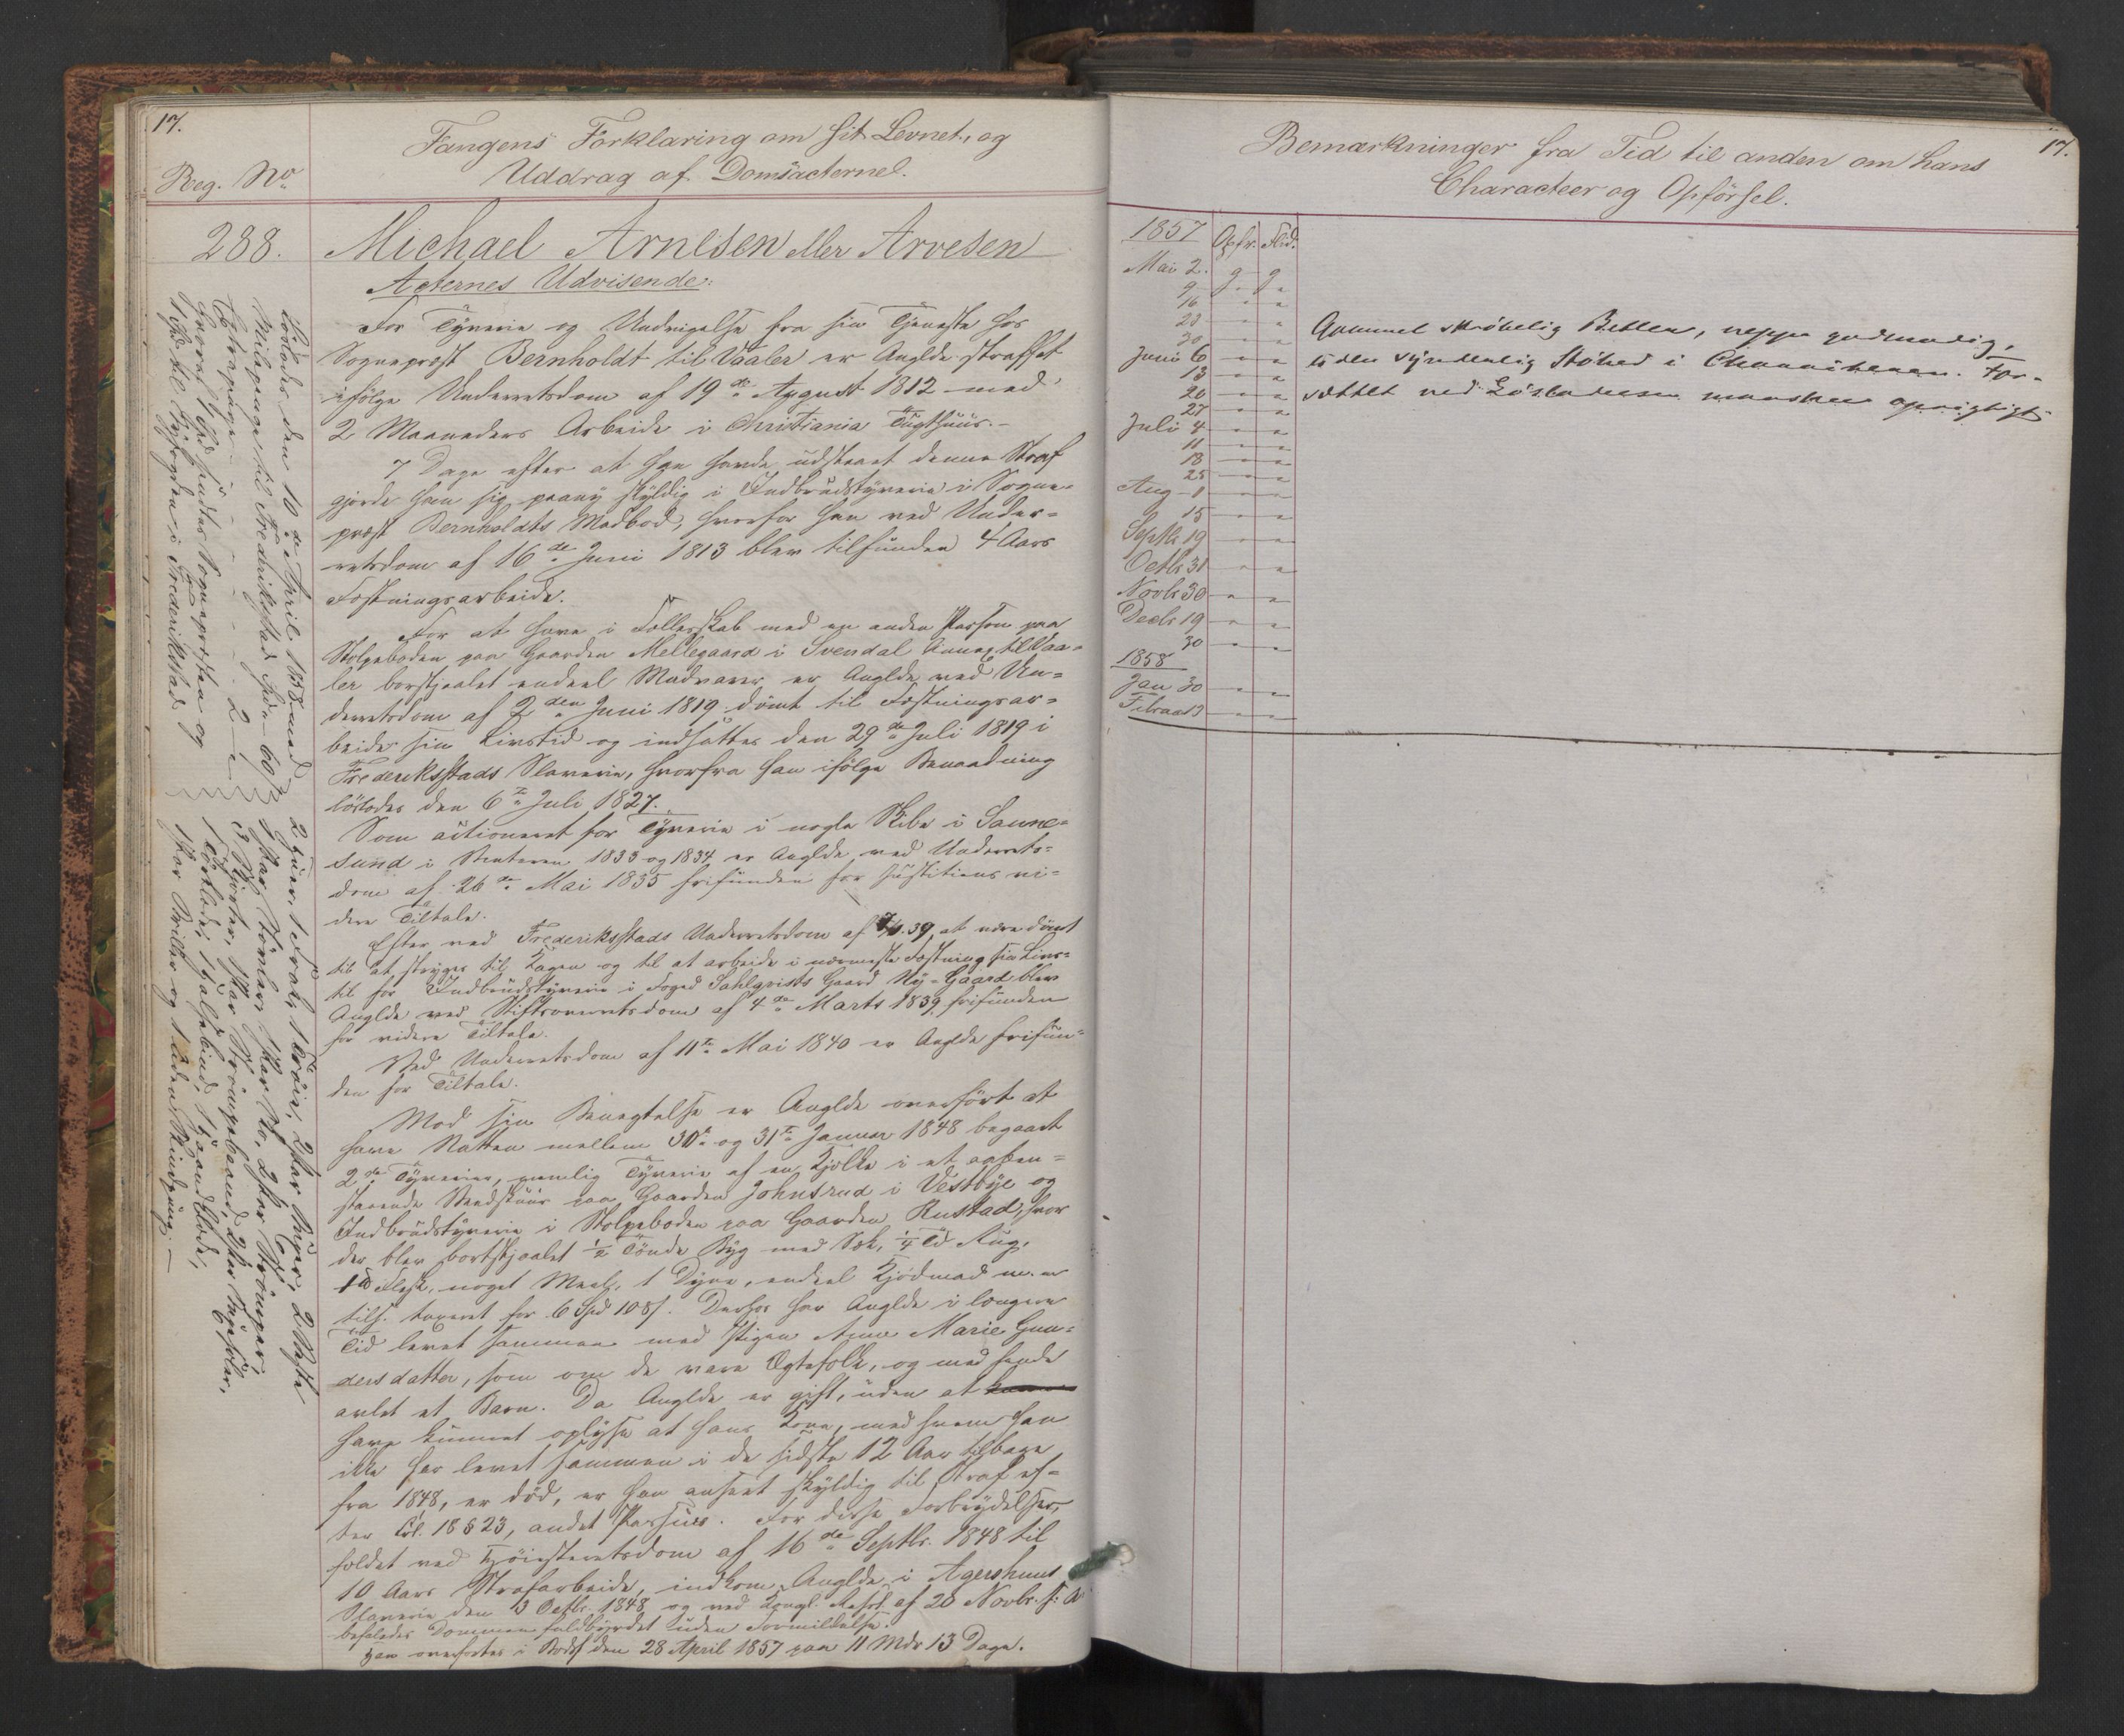 17.
Reg. No
Fangens Forklaring om sit Levnet, og
Uddrag af Domsacternel.
288.
Michael Arnesen eller Arvesen
Acternes Udvisende:
For Tyverie og Undvigelse fra sin Tjeneste hos
Sogneprest Bernholdt til Vaaler er Anglde straffet
ifølge Underretsdom af 19de August 1812 med
2 Maaneders Arbeide i Christiania Tugthuus.-
7 Dage efter at han havde udstaaet denne Straf
gjorde han sig paany skyldig i Indbrudstyverie i Sogne-
prest Bernholdts Madbod, hvorfor han ved Under-
retsdom af 16de Juni 1813 blev tilfunden 4 Aars
Fæstningsarbeide.
For at have i Fællesskab med en anden Person paa
Stolpeboden paa Gaarden Mellegaard i Svendal Annex til Vaa-
ler borstjaalet endeel Madvarer er Anglde ved Un-
derretsdom af 2den Juni 1819 dømt til Fæstningsar-
beide sin Livstid og indsattes den 29de Juli 1819 i
Frederiksstads Slaverie, hvorfra han ifølge Benaadning
løslodes den 6te Juli 1827.
Som actioneret for Tyverie i nogle Skibe i Saune-
sund i Vinteren 1833 og 1834 er Anglde ved Underrets-
dom af 26de Mai 1835 frifunden for Justitiens vi-
dere Tiltale.
Efter ved Frederiksstads Underretsdom af 39, at være dømt
til at stryges til Kagen og til at arbeide i nærmeste Fæstning sin Livs-
tid for Indbrudstyverie i Foged Sahlqvists Gaard Ny-Gaard blev
Anglde ved Stiftsoverretsdom af 4de Marts 1839 frifunden
for videre Tiltale.
Ved Underretsdom af 11te Mai 1840 er Anglde frifun-
den for Tiltale.
Mod sin Benegtelse er Anglde overført at
have Natten mellem 30te og 31te Januar 1848 begaaet
2de Tyverier, nemlig Tyverie af en Kjelke i et aaben-
staaende Vedskuur paa Gaarden Johnsrud i Vestbye og
Indbrudstyverie i Stolpeboden paa Gaarden Rustad, hvor
der blev bortstjaalet ½ Tønde Byg med Sæk, ¼ Td Rug,
Flesk, noget Meel, 1 Dyne, endeel Kjødmad m. m
tils. taxeret for 6 Spd 108 s. Derhos har Anglde i længere
Tid levet sammen med Pigen Anne Marie Gun-
dersdatter, som om de vare Ægtefolk, og med hende
avlet et Barn. Da Anglde er gift, uden at
have kunnet oplyse at hans Kone, med hvem han
ikke har levet sammen i de sidste 12 Aar tilbage
fra 1848, er død, er han anseet skyldig til Straf ef-
ter Col. 18 § 23, andet Passus. For disse Forbrydelser
fældet ved Høiesteretsdom af 16de Septbr. 1848 til
10 Aars Strafarbeide, indkom Anglde i Agershuus
Slaverie den 3 Octbr. 1848 og ved Kongl. Resol. af 20 Novbr. s: A
befaledes Dommen fuldbyrdet uden Formildelse.
Han overførtes i Bodsf den 28 April 1857 paa 11 Mdr 13 Dage.
Løslodes den 10de April 1858 med
Reisepenge til Frederikstad Spd - 60 s
2 -
hvoraf 1 Spd sendes Sognepresten og
1 Spd til Byfogden i Frederikstad
2 Huer, 1 Frak, 1 Trøie, 2 Par Buxer, 2 Veste
1 Par Støvler, 1 Par Sko, 2 Par Strømper,
3 Skjorter, 1 Par Strømpebaand,
1 Forklæde, 1 Halsbind,
1 Par Briller og 1 Læder Skindpung. -
17.
Bemærkninger fra Tid til anden om hans
Characteer og Opførsel.
1857 Opfr. Flid.
Mai 2. g g
9 " "
16 " "
23 " "
30 " "
Juni 6 " "
13 " "
20 " "
27 " "
Juli 4 " "
11 " "
18 " "
25 " "
Aug - 1 " "
15 " "
Septb 19 " "
Octb 31 " "
Novbr 30 " "
Decbr 19 " "
30 " "
1858
Jan 30 " "
Februar 13 " "
Gammel skrøbelig Betler, neppe godmodig,
uden synderlig Støhed i Charakteren. For-
sættet ved Løsladelsen maaskee oprigtigt.